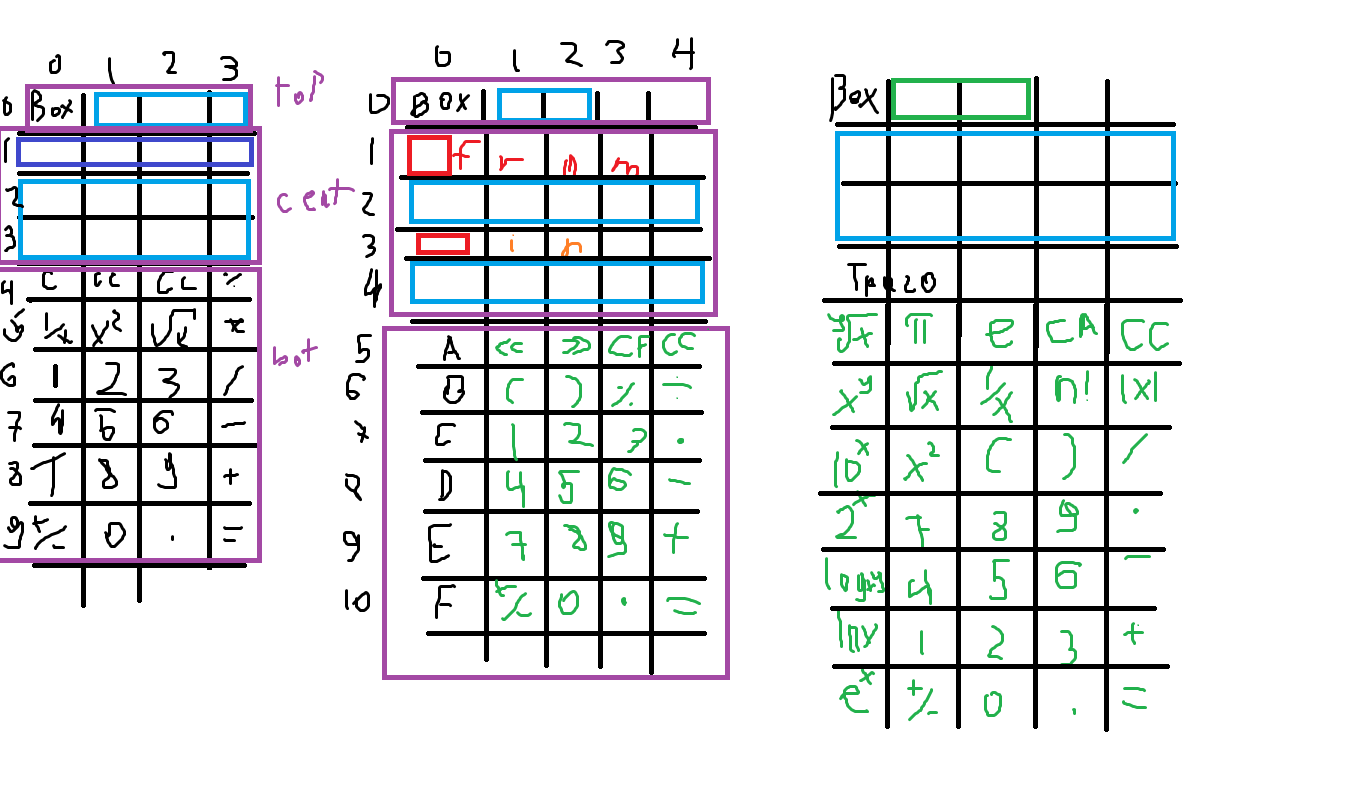 0 1 2 3
top
0 Box
1
2
cent
3
4 C CC %
5 1/x x² √x
bot
6 1 2 3 /
7 4 5 6 -
8 7 8 9 +
9 +/- 0 . =
0 1 2 3 4
0 BOX
1 f r o m
2
3 i n
4
5 A << >> CF CC
6 B ( ) % ÷
7 C 1 2 3 .
8 D 4 5 6 -
9 E 7 8 9 +
10 F +/- 0 . =
Box
y√x π e CA CC
x^y √x 1/x n! |x|
10^x x² ( ) /
2^x 7 8 9 .
4 5 6 -
lnx 1 2 3 +
e^x +/- 0 . =